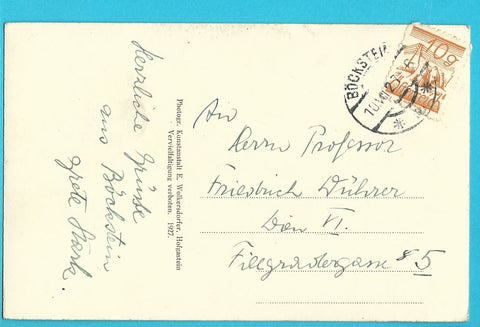 Herzliche Grüsse
aus Böckstein
Grete Stark.
Photogr. Kunstanstalt E. Wolkersdorfer, Hofgastein
Vervielfältigung verboten. 1927.
10g
BÖCKSTEIN
An
Herrn Professor
Friedrich Dührer
Wien VI.
Fillgradergasse 5